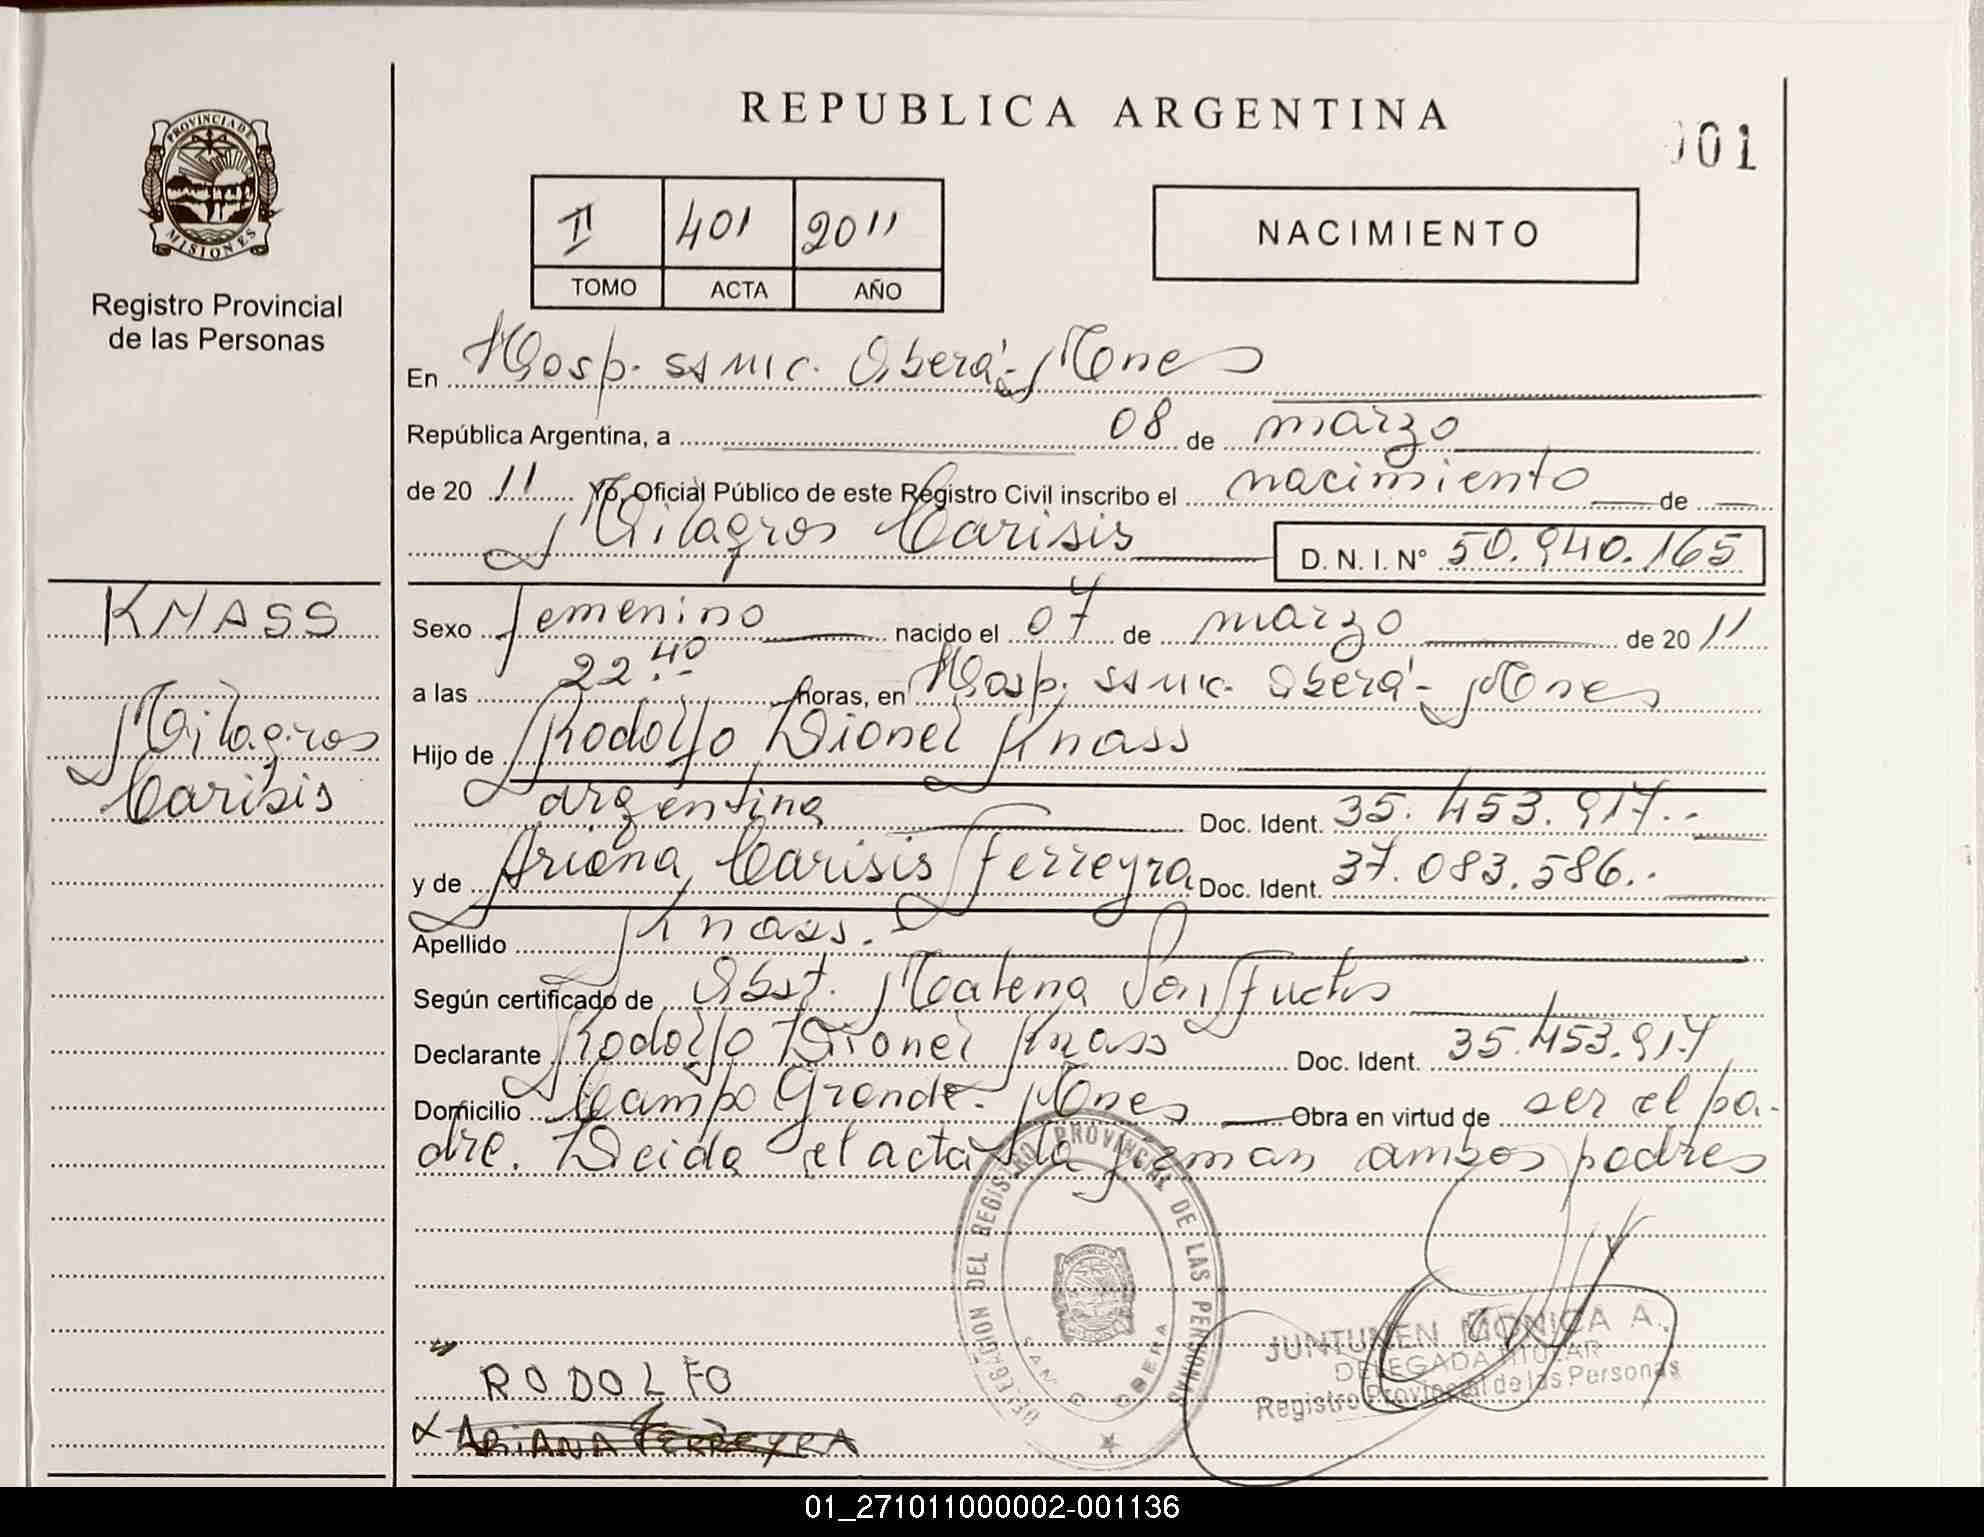 REPUBLICA ARGENTINA
001
PROVINCIA DE
MISIONES
Registro Provincial
de las Personas
II 401 2011
TOMO ACTA AÑO
NACIMIENTO
En Hosp. SSMIC. Oberá - Mnes
República Argentina, a 08 de marzo
de 2011 Yo, Oficial Público de este Registro Civil inscribo el nacimiento de
Milagros Carisis D. N. I. N° 50.940.165
KNASS
Milagros
Carisis
Sexo femenino nacido el 07 de marzo de 2011
a las 22.40 horas, en Hosp. SSMIC. Oberá - Mnes
Hijo de Rodolfo Dionel Knass
argentina Doc. Ident. 35.453.917.-
y de Ariana Carisis Ferreyra Doc. Ident. 37.083.586.-
Apellido Knass.
Según certificado de Obst. Malena
Declarante Rodolfo Dionel Knass Doc. Ident. 35.453.917
Domicilio Campo Grande - Mnes Obra en virtud de ser el pa-
dre. Leida el acta la firman ambos padres
DELEGACION DEL REGISTRO PROVINCIAL DE LAS PERSONAS
OBERA
JUNTUNEN MONICA A.
DELEGADA TITULAR
Registro Provincial de las Personas
RODOLFO
ARIANA FERREYRA
01_271011000002-001136